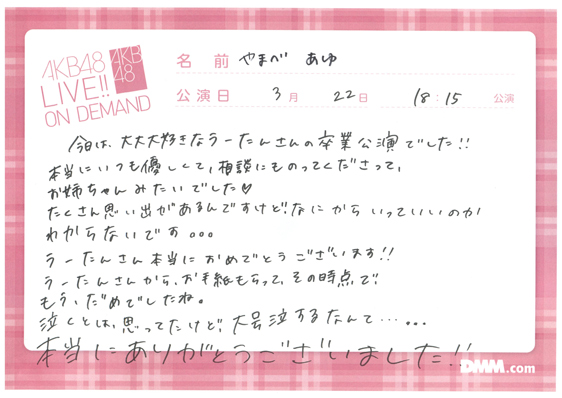 AKB48
LIVE!!
ON DEMAND
AKB
48
名前 やまべ あゆ
公演日 3月 22日 18:15 公演
今日は、大大大好きなうーたんさんの卒業公演でした!!
本当にいつも優しくて、相談にものってくださって、
お姉ちゃんみたいでした♡
たくさん思い出があるんですけど、なにからいっていいのか
わからないです...
うーたんさん本当におめでとうございます!!
うーたんさんから、お手紙もらって、その時点で、
もう、だめでしたね。
泣くとは、思ってたけど、大号泣するなんて......
本当にありがとうございました!!
DMM.com